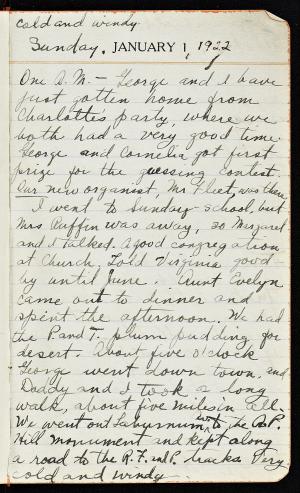 cold and windy
Sunday, JANUARY 1, 1922
One A.M. - George and I have
just gotten home from
Charlotte's party, where we
both had a very good time.
George and Cornelia got first
prize for the guessing contest.
Our new organist, Mr. Fleet, was there.
I went to Sunday-school, but
Mrs Ruffin was away, so Margaret
and I talked. A good congregation
at Church. Told Virginia good-
by until June. Aunt Evelyn
came out to dinner and
spent the afternoon. We had
the P. and T. plum pudding for
desert. About five o'clock
George went down town, and
Daddy and I took a long
walk, about five miles in all.
We went out Laburnum ave. to the A.P.
Hill monument and kept along
a road to the R.F. and P. tracks. Very
cold and windy.